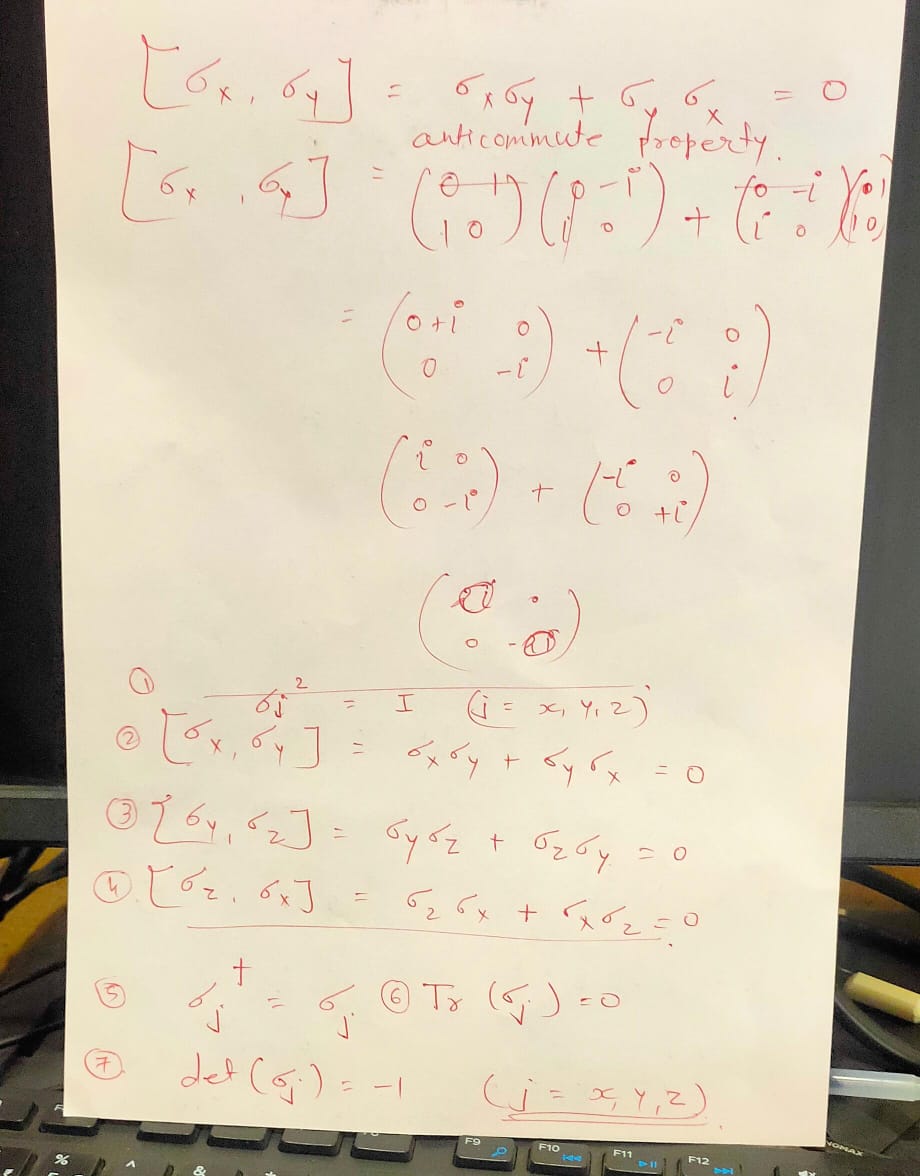 [σx, σy] = σxσy + σyσx = 0
anticommute property.
[σx, σy] = (0 1; 1 0)(0 -i; i 0) + (0 -i; i 0)(0 1; 1 0)
= (0+i 0; 0 -i) + (-i 0; 0 i)
(i 0; 0 -i) + (-i 0; 0 +i)
① σj² = I (j = x, y, z)
② [σx, σy] = σxσy + σyσx = 0
③ [σy, σz] = σyσz + σzσy = 0
④ [σz, σx] = σzσx + σxσz = 0
⑤ σj† = σj ⑥ Tr (σj) = 0
⑦ det (σj) = -1 (j = x, y, z)
F9 F10 F11 F12
% ^ & *